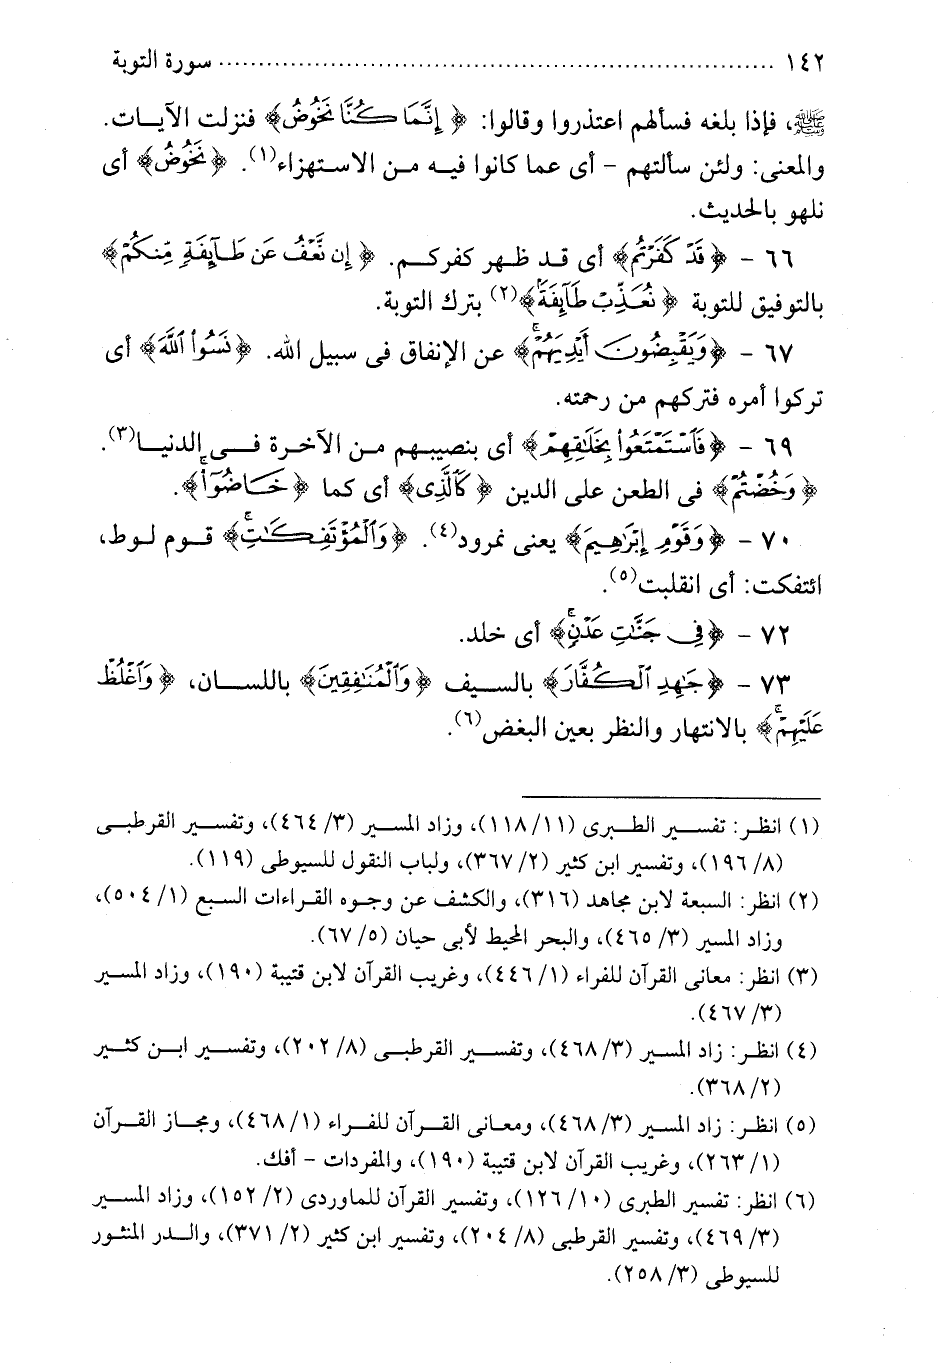 ١٤٢ ........................................ سورة التوبة
ﷺ، فإذا بلغه فسألهم اعتذروا وقالوا: ﴿ إِنَّمَا كُنَّا نَخُوضُ﴾ فنزلت الآيات.
والمعنى: ولئن سألتهم – أى عما كانوا فيه من الاستهزاء(١). ﴿نَخُوضُ﴾ أى
نلهو بالحديث.
٦٦ – ﴿قَدْ كَفَرْتُم﴾ أى قد ظهر كفركم. ﴿ إِن نَّعْفُ عَن طَآئِفَةٍ مِّنكُمْ﴾
بالتوفيق للتوبة ﴿ نُعَذِّبْ طَآئِفَةً﴾(٢) بترك التوبة.
٦٧ – ﴿وَيَقْبِضُونَ أَيْدِيَهُمْ ۚ﴾ عن الإنفاق فى سبيل الله. ﴿نَسُوا۟ ٱللَّهَ﴾ أى
تركوا أمره فتركهم من رحمته.
٦٩ – ﴿فَٱسْتَمْتَعُوا۟ بِخَلَـٰقِهِمْ﴾ أى بنصيبهم من الآخرة فى الدنيا(٣).
﴿ وَخُضْتُمْ﴾ فى الطعن على الدين ﴿ كَٱلَّذِى﴾ أى كما ﴿خَاضُوٓا۟ ۚ﴾.
٧٠ – ﴿وَقَوْمِ إِبْرَٰهِيمَ﴾ يعنى نمرود(٤). ﴿وَٱلْمُؤْتَفِكَـٰتِ ۚ﴾ قوم لوط،
ائتفكت: أى انقلبت(٥).
٧٢ – ﴿فِى جَنَّـٰتِ عَدْنٍ ۚ﴾ أى خلد.
٧٣ – ﴿جَـٰهِدِ ٱلْكُفَّارَ﴾ بالسيف ﴿وَٱلْمُنَـٰفِقِينَ﴾ باللسان، ﴿وَٱغْلُظْ
عَلَيْهِمْ ۚ﴾ بالانتهار والنظر بعين البغض(٦).
(١) انظر: تفسير الطبرى (١١/ ١١٨)، وزاد المسير (٣/ ٤٦٤)، وتفسير القرطبى
(٨/ ١٩٦)، وتفسير ابن كثير (٢/ ٣٦٧)، ولباب النقول للسيوطى (١١٩).
(٢) انظر: السبعة لابن مجاهد (٣١٦)، والكشف عن وجوه القراءات السبع (١/ ٥٠٤)،
وزاد المسير (٣/ ٤٦٥)، والبحر المحيط لأبى حيان (٥/ ٦٧).
(٣) انظر: معانى القرآن للفراء (١/ ٤٤٦)، وغريب القرآن لابن قتيبة (١٩٠)، وزاد المسير
(٣/ ٤٦٧).
(٤) انظر: زاد المسير (٣/ ٤٦٨)، وتفسير القرطبى (٨/ ٢٠٢)، وتفسير ابن كثير
(٢/ ٣٦٨).
(٥) انظر: زاد المسير (٣/ ٤٦٨)، ومعانى القرآن للفراء (١/ ٤٦٨)، ومجاز القرآن
(١/ ٢٦٣)، وغريب القرآن لابن قتيبة (١٩٠)، والمفردات – أفك.
(٦) انظر: تفسير الطبرى (١٠/ ١٢٦)، وتفسير القرآن للماوردى (٢/ ١٥٢)، وزاد المسير
(٣/ ٤٦٩)، وتفسير القرطبى (٨/ ٢٠٤)، وتفسير ابن كثير (٢/ ٣٧١)، والدر المنثور
للسيوطى (٣/ ٢٥٨).